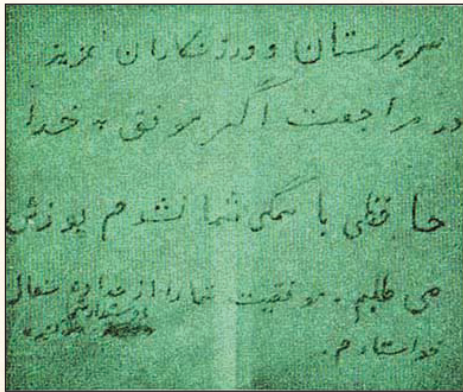 سرپرستان و ورزشکاران عزیز
در مراجعت اگر موفق به خدا
حافظی با همگی شما نشدم پوزش
می طلبم . موفقیت شما را از خداوند متعال
خواستارم .